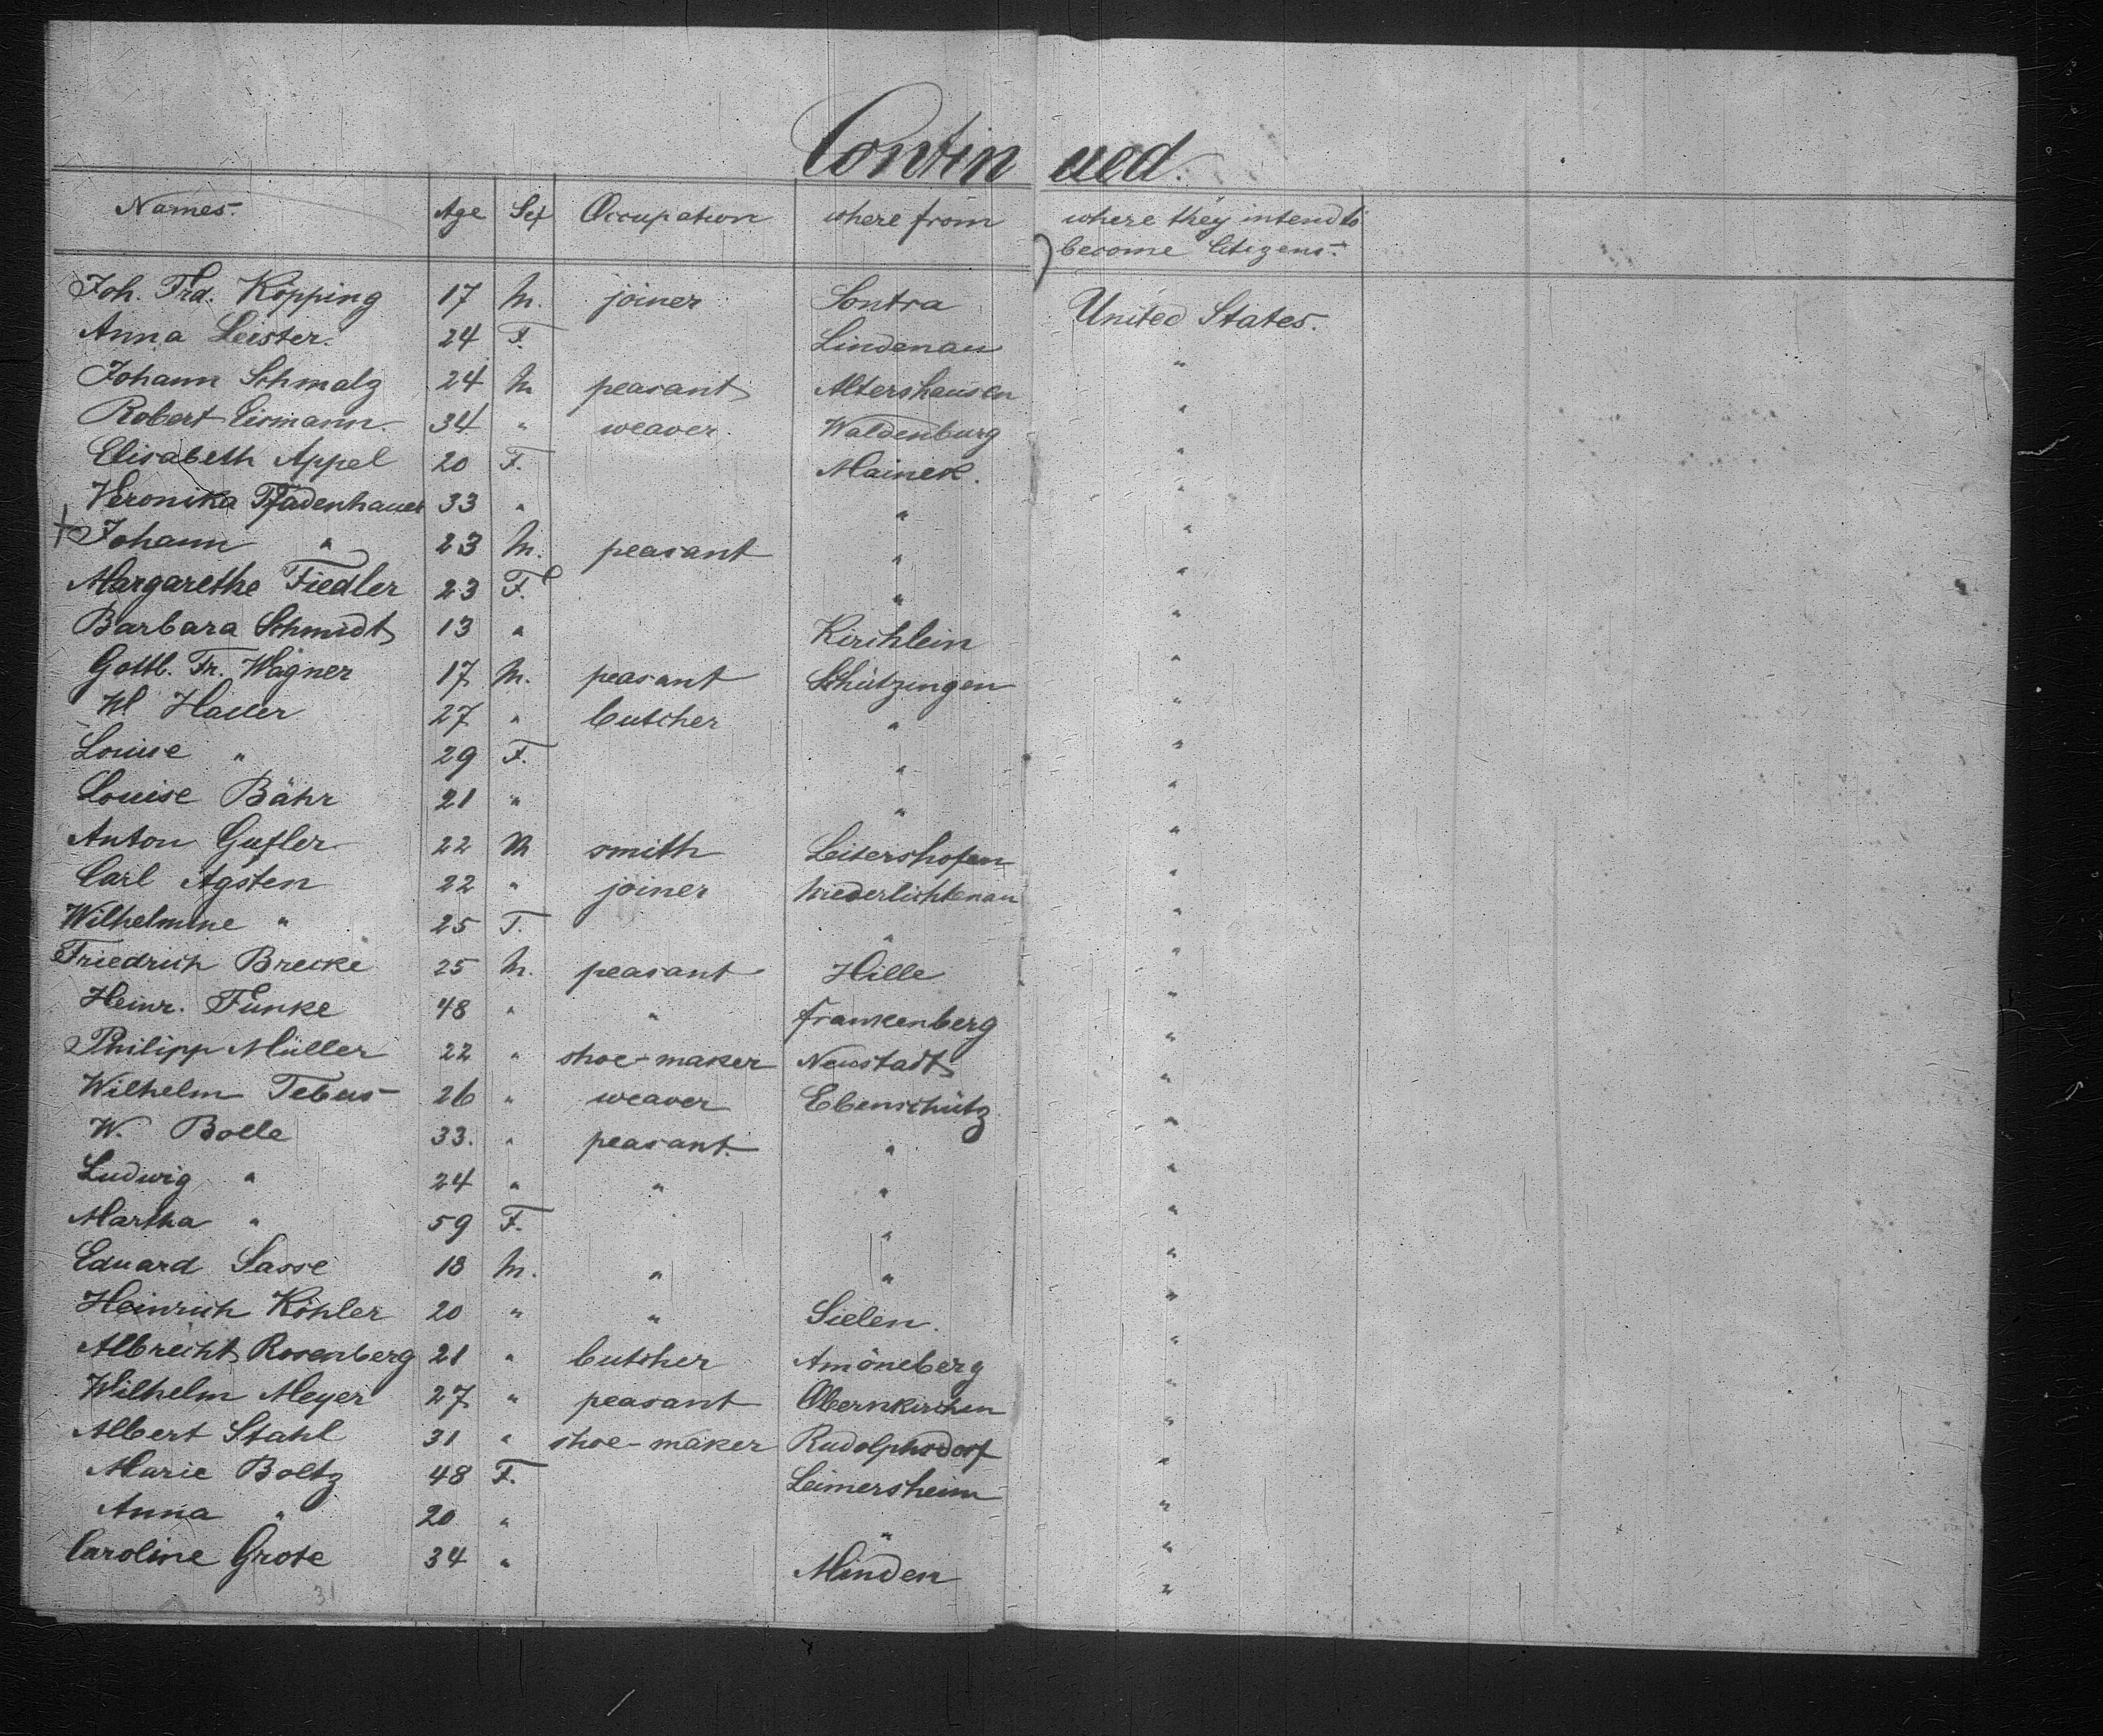 Continued.
Names. Age Sex Occupation where from where they intend to
become Citizens.
Joh. Frd. Köpping 17 M. joiner Sontra United States.
Anna Leister. 24 F. Lindenau "
Johann Schmalz 24 M peasant Altershausen "
Robert Eismann. 34 " weaver. Waldenburg "
Elisabeth Appel 20 F. Mainek. "
Veronika Pfadenhauer 33 " " "
+ Johann " 23 M. peasant " "
Margarethe Fiedler 23 F. " "
Barbara Schmidt 13 " Kirchlein "
Gottl. Fr. Wagner 17 M. peasant Schützingen "
Wl Haller 27 " butcher " "
Louise " 29 F. " "
Louise Bähr 21 " " "
Anton Gufler 22 M smith Leitershofen "
Carl Agsten 22 " joiner Niederlichtenau "
Wilhelmine " 25 F. " "
Friedrich Brecke 25 M. peasant Hille "
Heinr. Funke 48 " " Frankenberg "
Philipp Müller 22 " shoe-maker Neustadt "
Wilhelm Tebus 26 " weaver Ebenschütz "
W. Bolle 33. " peasant " "
Ludwig " 24 " " " "
Martha " 59 F. " "
Eduard Sasse 18 M. " " "
Heinrich Köhler 20 " " Sielen. "
Albrecht Rosenberg 21 " butcher Amöneberg "
Wilhelm Meyer 27 " peasant Obernkirchen "
Albert Stahl 31 " shoe-maker Rudolphsdorf "
Marie Boltz 48 F. Leimersheim "
Anna " 20 " " "
Caroline Grote 34 " Minden "
31